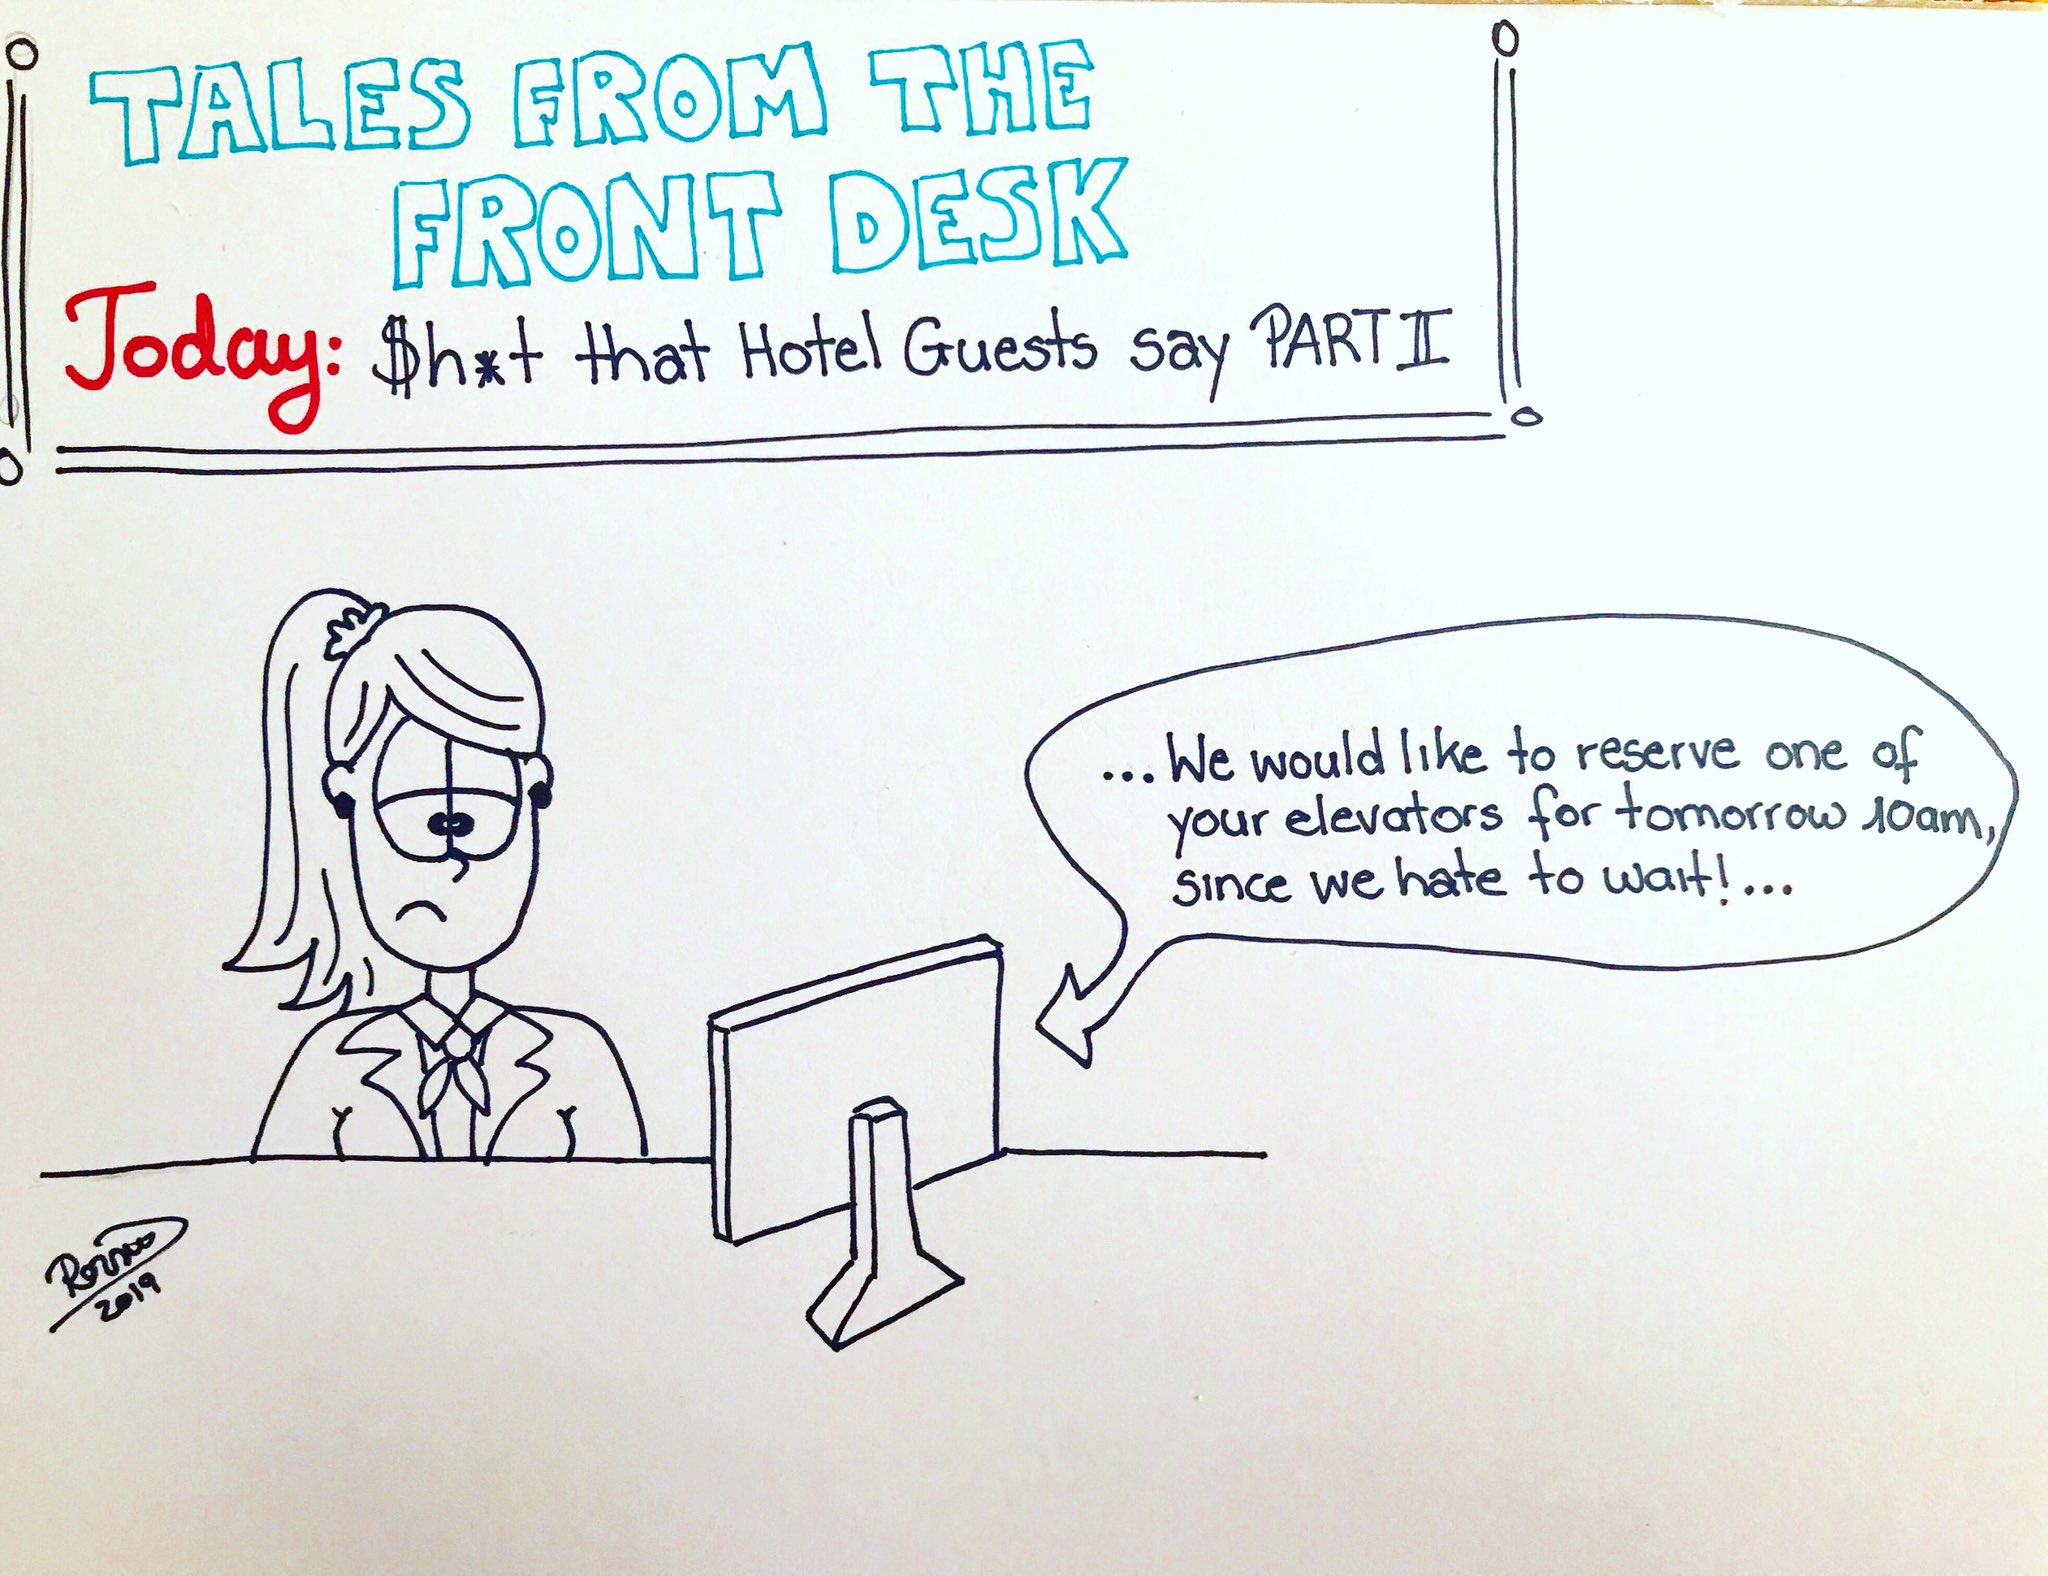 TALES FROM THE
FRONT DESK
Today: $h*t that Hotel Guests say PART II
...We would like to reserve one of
your elevators for tomorrow 10am,
since we hate to wait!...
2019